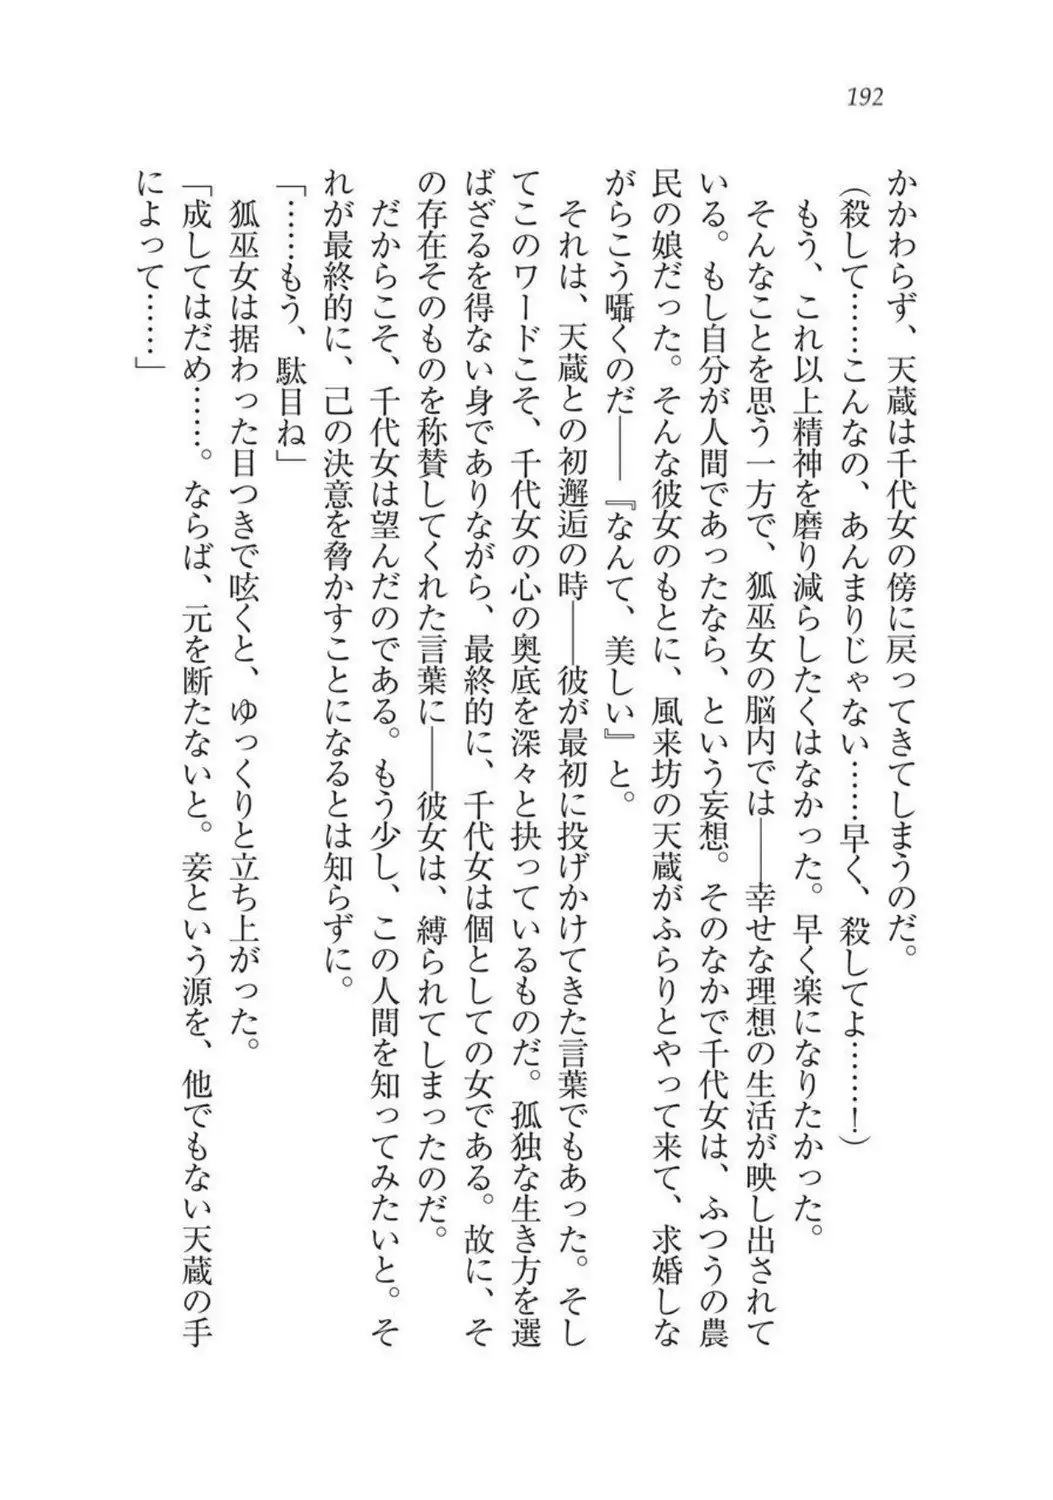 192
かかわらず、天蔵は千代女の傍に戻ってきてしまうのだ。
（殺して……こんなの、あんまりじゃない……早く、殺してよ……！）
もう、これ以上精神を磨り減らしたくはなかった。早く楽になりたかった。
そんなことを思う一方で、狐巫女の脳内では――幸せな理想の生活が映し出されて
いる。もし自分が人間であったなら、という妄想。そのなかで千代女は、ふつうの農
民の娘だった。そんな彼女のもとに、風来坊の天蔵がふらりとやって来て、求婚しな
がらこう囁くのだ――『なんて、美しい』と。
それは、天蔵との初邂逅の時――彼が最初に投げかけてきた言葉でもあった。そし
てこのワードこそ、千代女の心の奥底を深々と抉っているものだ。孤独な生き方を選
ばざるを得ない身でありながら、最終的に、千代女は個としての女である。故に、そ
の存在そのものを称賛してくれた言葉に――彼女は、縛られてしまったのだ。
だからこそ、千代女は望んだのである。もう少し、この人間を知ってみたいと。そ
れが最終的に、己の決意を脅かすことになるとは知らずに。
「……もう、駄目ね」
狐巫女は据わった目つきで呟くと、ゆっくりと立ち上がった。
「成してはだめ……。ならば、元を断たないと。妾という源を、他でもない天蔵の手
によって……」